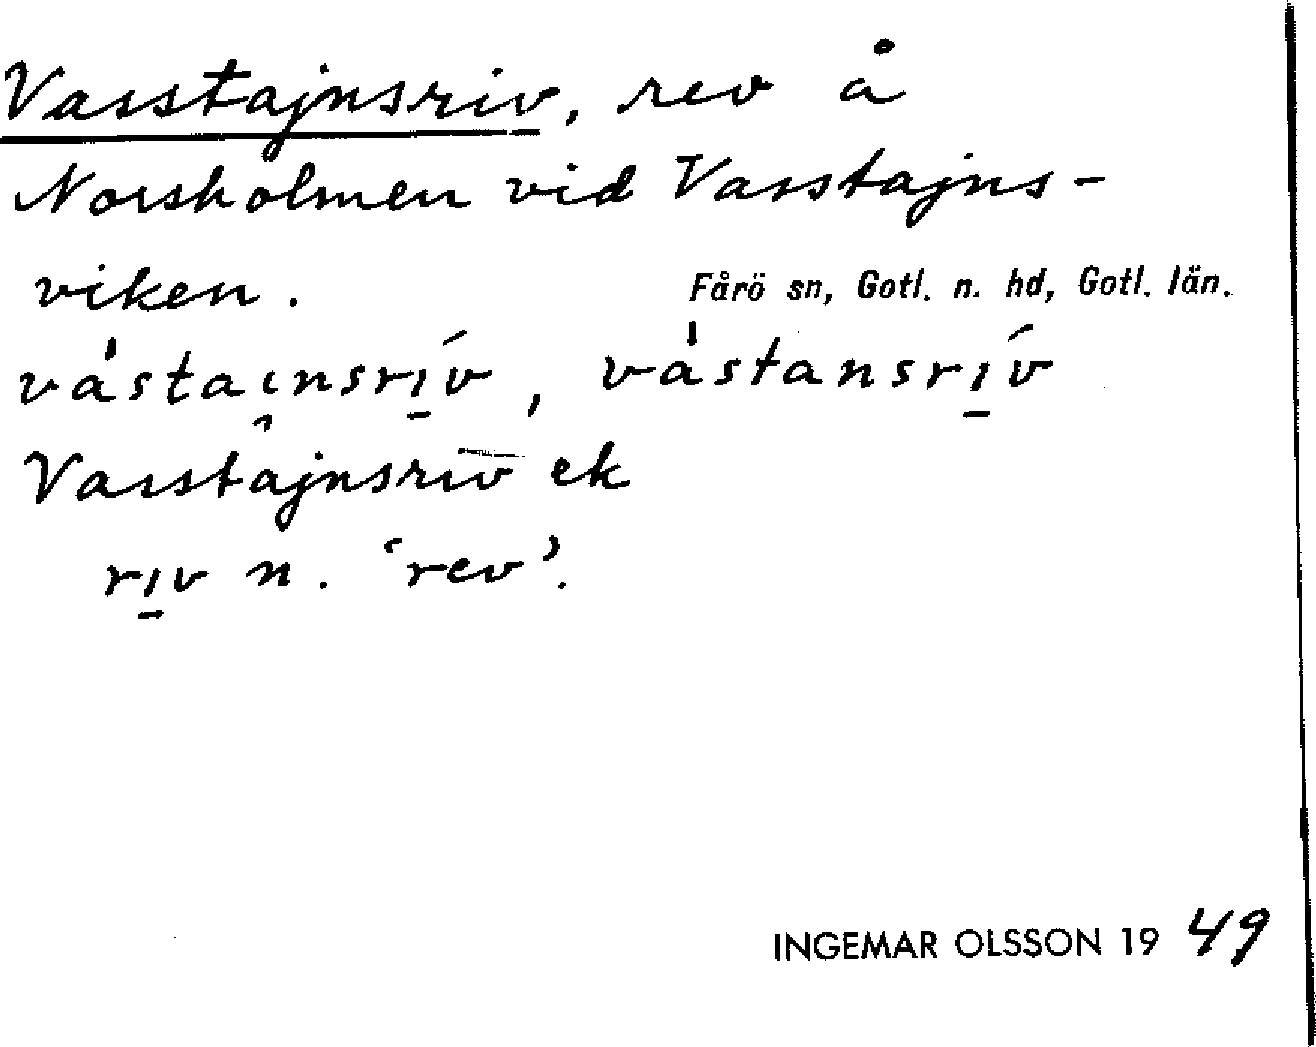 Vasstajnsriv, rev å
Norsholmen vid Vasstajns-
viken.
Fårö sn, Gotl. n. hd, Gotl. län.
va̍staɩ̯nsrı̱́v, va̍stansrı̱́v
Vasstajnsriv ek
rı̱v n. 'rev'.
INGEMAR OLSSON 1949